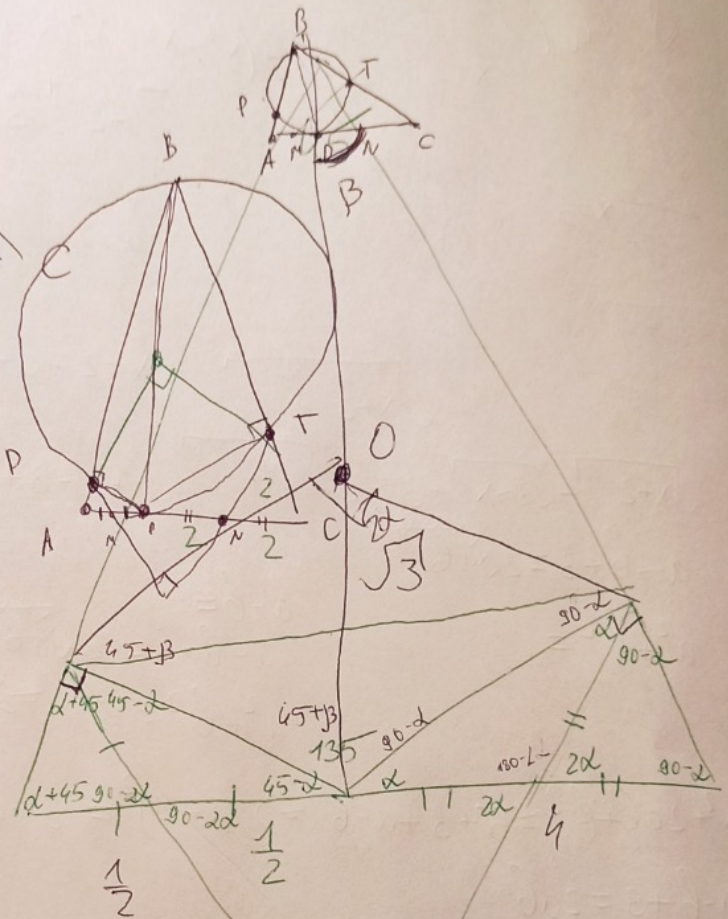 B
P
T
A
M
D
N
C
β
B
C
P
T
A
M
P
N
C
2
2
2
O
2α
√3
45+β
90-α
α
90-α
α+45
45-α
45+β
135
90-α
α+45
90-2α
90-2α
45-α
α
2α
2α
90-α
1/2
1/2
4